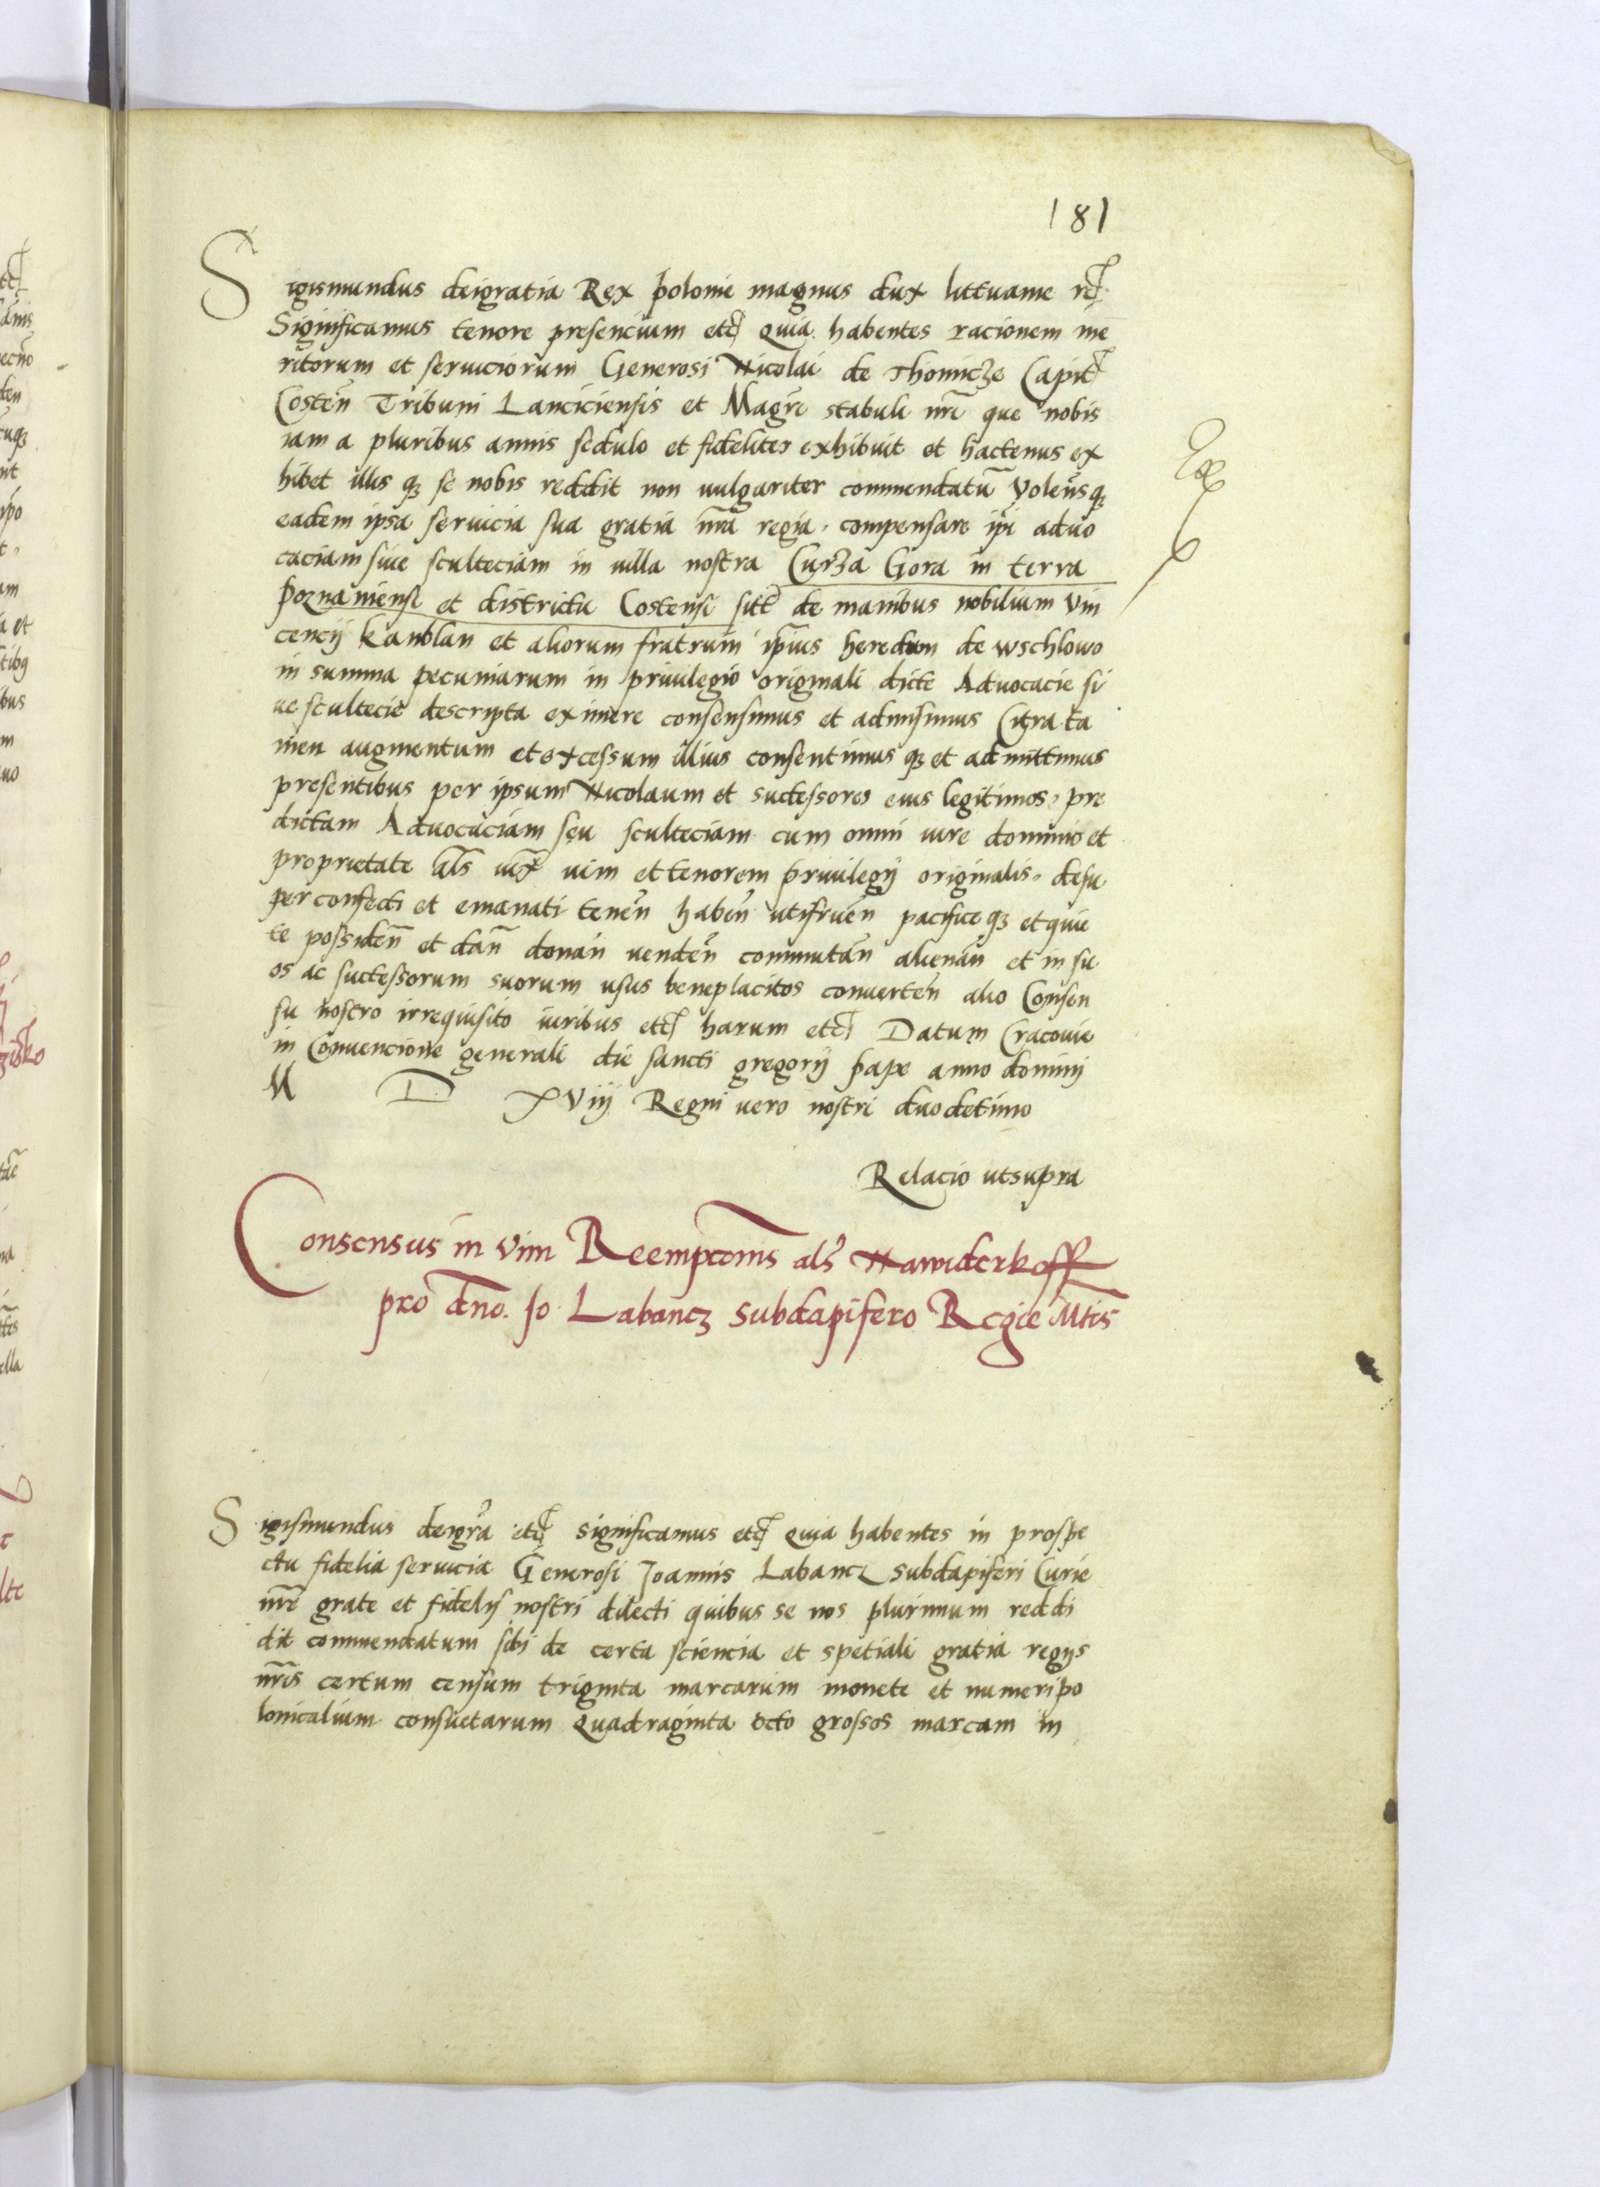 181
Sigismundus deigratia Rex polonie magnus dux littuanie etc
Significamus tenore presencium etc Quia habentes racionem me
ritorum et seruiciorum Generosi Nicolai de Thomicze Capit
Costen Tribuni Lanciciensis et Magri stabuli nri que nobis
iam a pluribus annis sedulo et fideliter exhibuit et hactenus ex
hibet illis qz se nobis reddit non uulgariter commendatū Volensqz
eadem ipsa seruicia sua gratia nra regia compensare ipi aduo
caciam siue sculteciam in uilla nostra Curza Gora in terra
poznaniensi et districtu Costensi sitt de manibus nobilium Vin
cencij kanblan et aliorum fratrum ipius heredum de wschlowo
in summa pecuniarum in priuilegio originali dicte Aduocacie si
ue scultecie descripta eximere consensimus et admisimus Citra ta
men augmentum et excessum illius consentimus qz et admittimus
presentibus per ipsum Nicolaum et successores eius legitimos pre
dictam Aduocaciam seu sculteciam cum omni iure dominio et
proprietate als iux uim et tenorem priuilegij originalis desu
per confecti et emanati tenen haben utifruen pacifice qz et quie
te possiden et dan donan uenden commutan alienan et in su
os ac successorum suorum usus beneplacitos conuerten alio Consen
su nostro irrequisito iuribus etc harum etc Datum Cracouie
in Conuencione generali die sancti gregorij pape anno domini
M D XViij Regni uero nostri duodecimo
Relacio utsupra
Consensus in Vim Reempcionis als Nawiderkoff
pro dno. Jo Labancz Subdapifero Regie Mtis
Sigismundus deigra etc significamus etc Quia habentes in prospe
ctu fidelia seruicia Generosi Joannis Labancz subdapiferi Curie
nre grate et fidelis nostri dilecti quibus se nos plurimum reddi
dit commendatum sibi de certa sciencia et speciali gratia regijs
nris certum censum triginta marcarum monete et numeri po
lonicalium consuetarum Quadraginta octo grossos marcam in